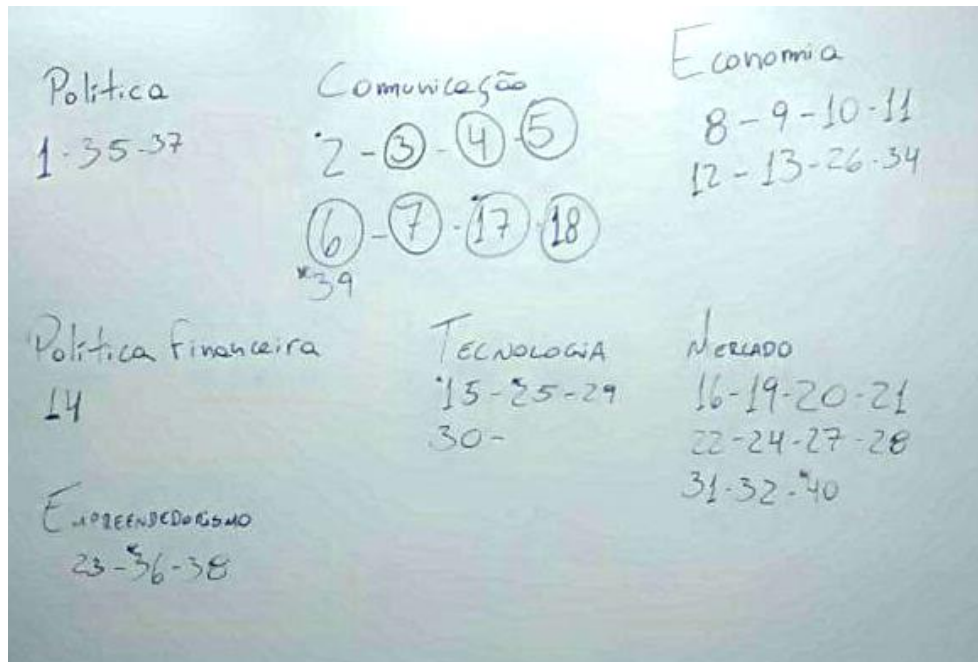 Política
1-35-37
Comunicação
*2-3-4-5
6-7-17-18
*39
Economia
8-9-10-11
12-13-26-34
Política Financeira
14
TECNOLOGIA
*15-*25-29
30-
MERCADO
16-19-20-21
22-24-27-28
31-32-*40
EMPREENDEDORISMO
23-*36-38